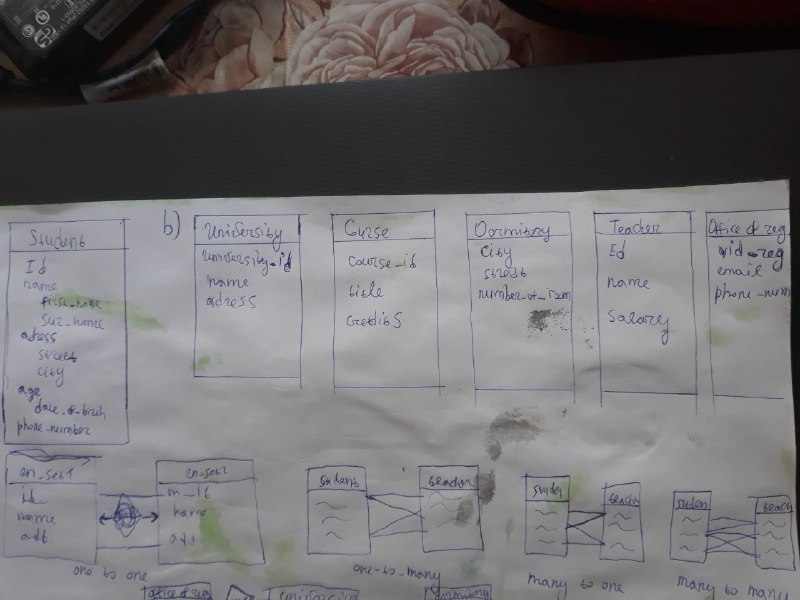 Student
Id
name
first_name
sur_name
adress
street
city
age
date_of_birth
phone_number
b)
University
university_id
name
adress
Course
course_id
title
Cretdits
Dormitory
City
street
number_of_room
Teacher
Id
name
Salary
Office of reg
email
phone_num
en_set1
id
name
en_set2
name
one to one
Students
teacher
one-to-many
Studen
teach
many to one
studen
teach
many to many
office of reg
university